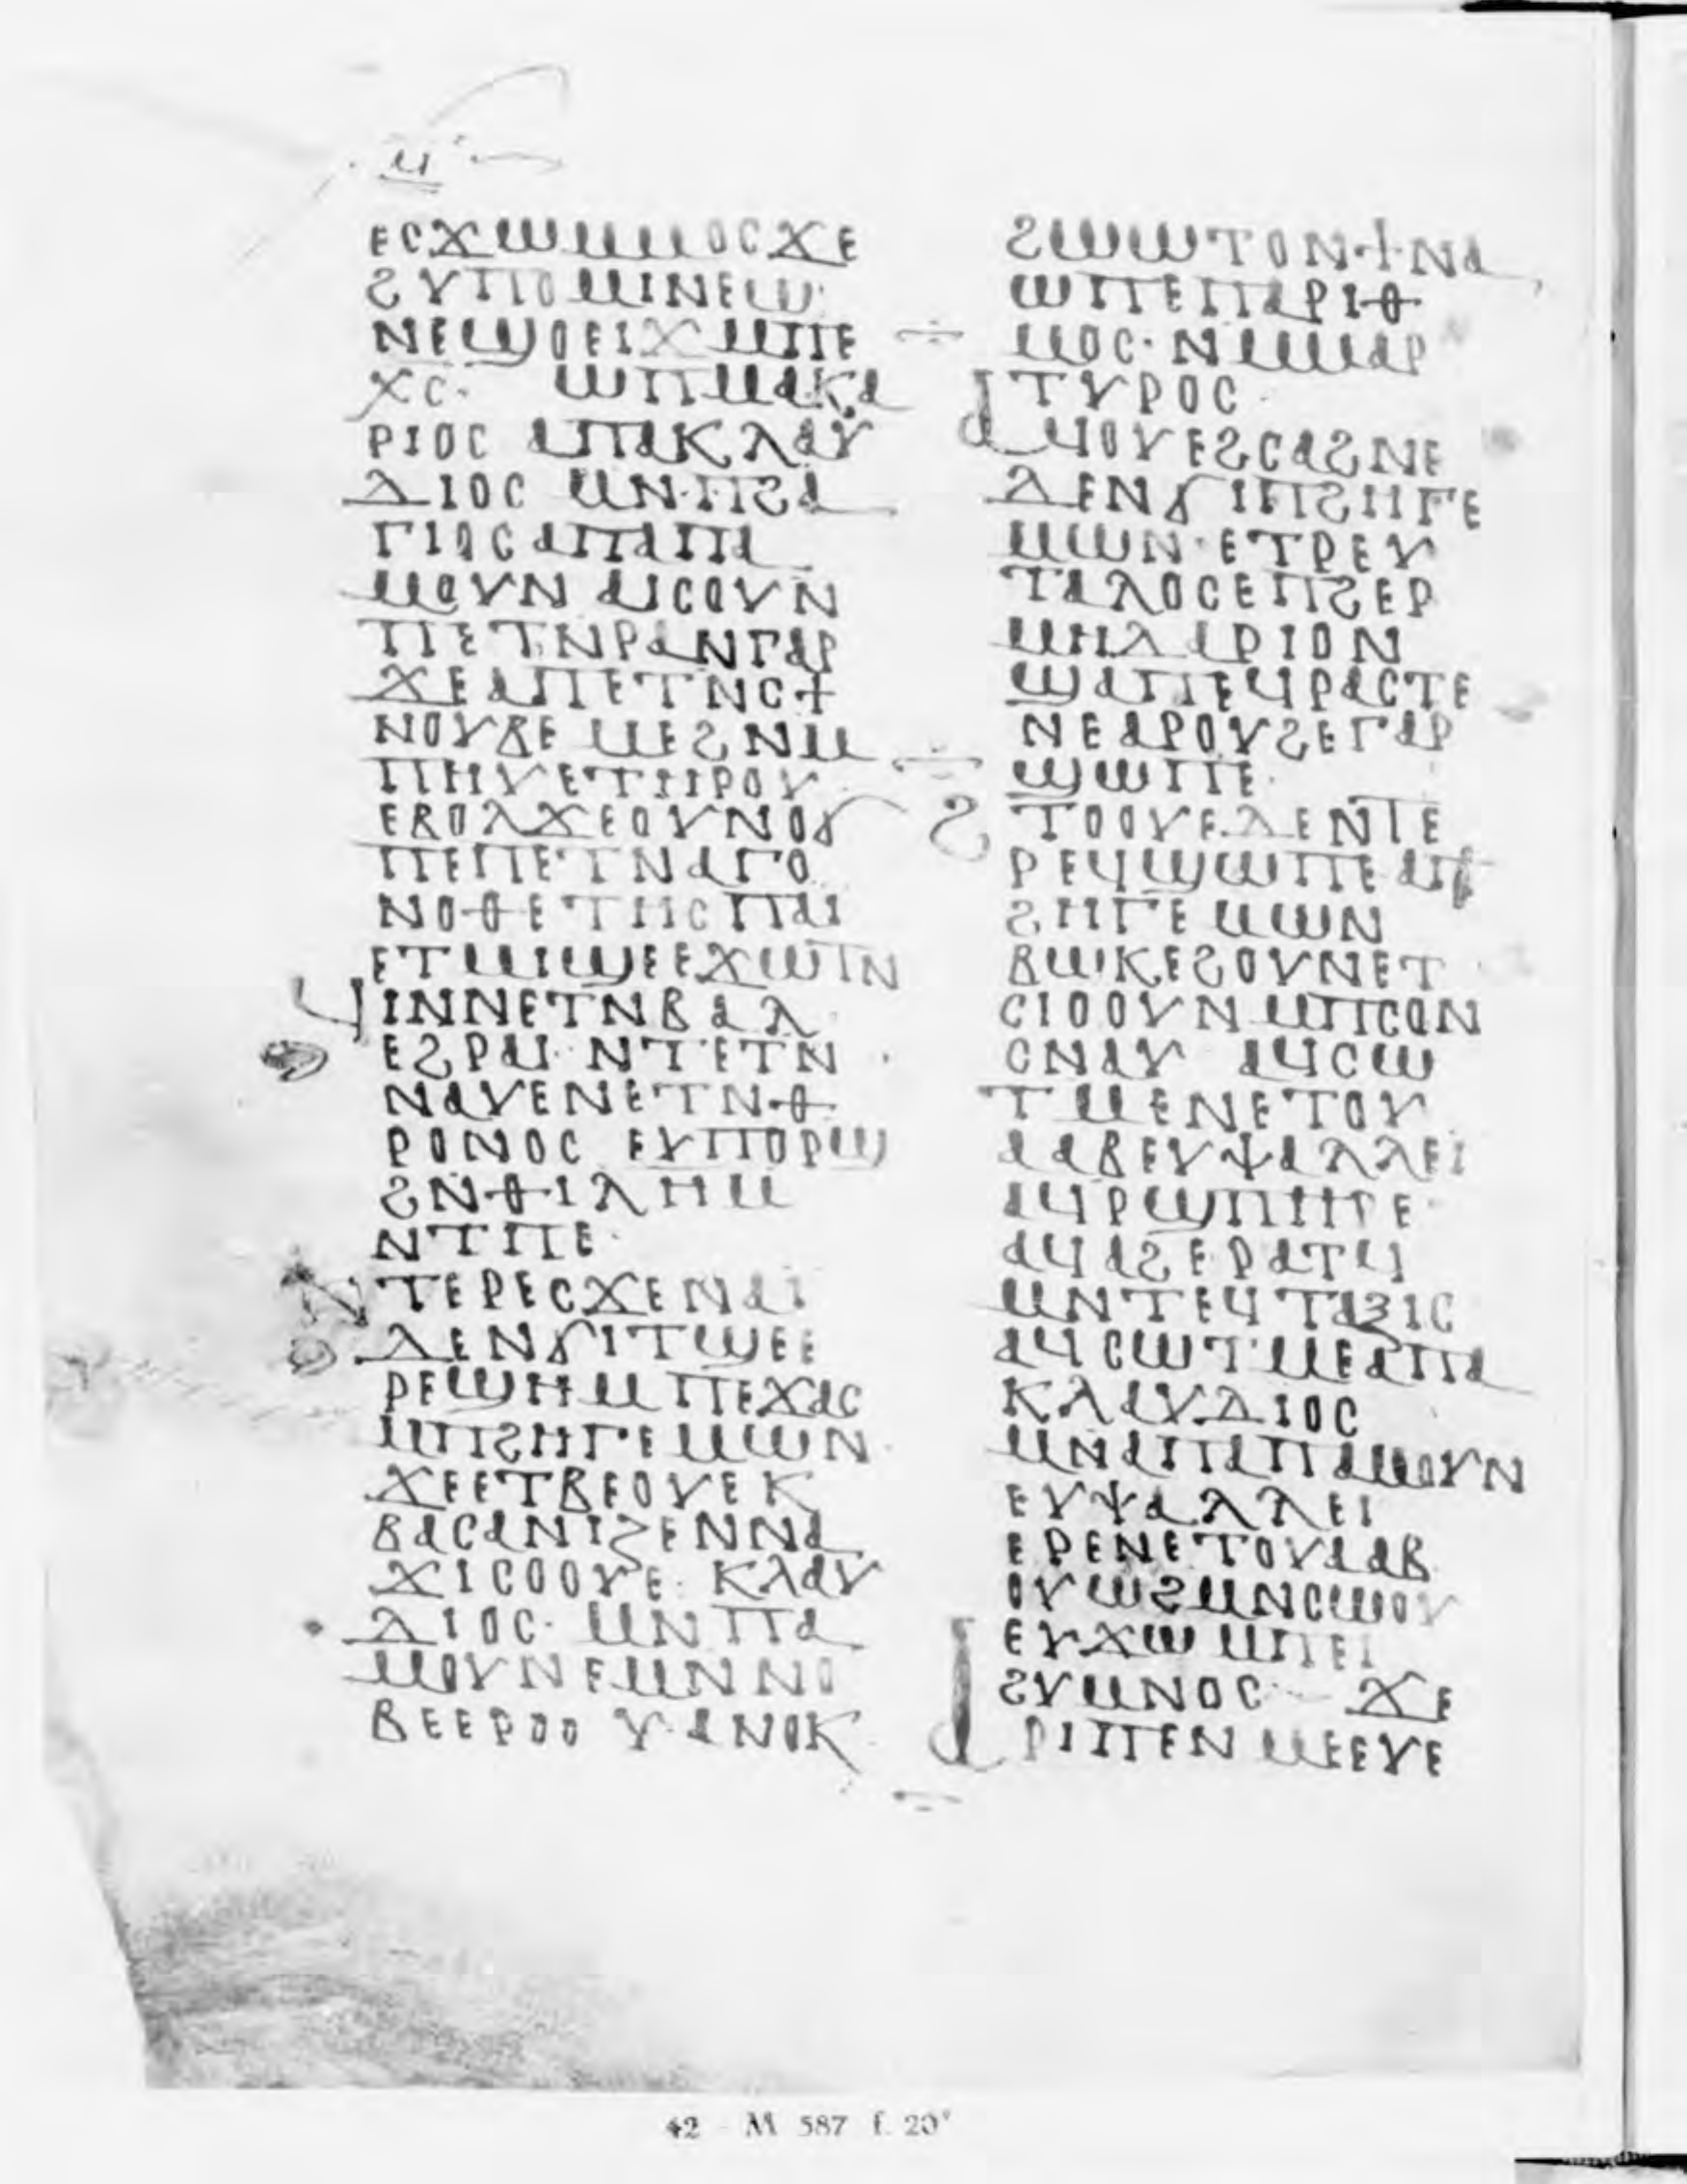 ⲙ
ⲉⲥϫⲱⲙⲙⲟⲥϫⲉ
ϩⲩⲡⲟⲙⲓⲛⲉⲱ
ⲛⲉϣⲟⲉⲓϫⲙⲡⲉ
ⲭⲥ· ⲱⲡⲙⲁⲕⲁ
ⲣⲓⲟⲥ ⲁⲡⲁⲕⲗⲁⲩ
ⲇⲓⲟⲥ ⲙⲛ·ⲡϩⲁ
ⲅⲓⲟⲥⲁⲡⲁⲡⲁ
ⲙⲟⲩⲛ ⲁⲓⲥⲟⲩⲛ
ⲡⲉⲧⲛⲣⲁⲛⲅⲁⲣ
ϫⲉⲁⲡⲉⲧⲛⲥϯ
ⲛⲟⲩⲃⲉ ⲙⲉϩⲛⲙ
ⲡⲏⲩⲉⲧⲏⲣⲟⲩ
ⲉⲃⲟⲗϫⲉⲟⲩⲛⲟϭ
ⲡⲉⲡⲉⲧⲛⲁⲅⲟ
ⲛⲟⲑⲉⲧⲏⲥⲡⲁⲓ
ⲉⲧⲙⲓϣⲉⲉϫⲱⲧⲛ
ϥⲓⲛⲛⲉⲧⲛⲃⲁⲗ
ⲉϩⲣⲁⲓ· ⲛⲧⲉⲧⲛ
ⲛⲁⲩⲉⲛⲉⲧⲛⲑ
ⲣⲟⲛⲟⲥ ⲉⲩⲡⲟⲣϣ
ϩⲛⲑⲓⲗⲏⲙ
ⲛⲧⲡⲉ·
ⲛⲧⲉⲣⲉⲥϫⲉⲛⲁⲓ
ⲇⲉⲛϭⲓⲧϣⲉⲉ
ⲣⲉϣⲏⲙ ⲡⲉϫⲁⲥ
ⲙⲡϩⲏⲅⲉⲙⲱⲛ
ϫⲉⲉⲧⲃⲉⲟⲩⲉⲕ
ⲃⲁⲥⲁⲛⲓⲍⲉⲛⲛⲁ
ϫⲓⲥⲟⲟⲩⲉ· ⲕⲗⲁⲩ
ⲇⲓⲟⲥ· ⲙⲛ ⲡⲁ
ⲙⲟⲩⲛ ⲉⲙⲛⲛⲟ
ⲃⲉⲉⲣⲟⲟ ⲩ·ⲁⲛⲟⲕ
ϩⲱⲱⲧⲟⲛ·ϯⲛⲁ
ⲱⲡⲉⲡⲁⲣⲓⲑ
ⲙⲟⲥ· ⲛⲙⲙⲁⲣ
ⲧⲩⲣⲟⲥ·
ⲁϥⲟⲩⲉϩⲥⲁϩⲛⲉ
ⲇⲉⲛϭⲓⲡϩⲏⲅⲉ
ⲙⲱⲛ·ⲉⲧⲣⲉⲩ
ⲧⲁⲗⲟⲥⲉⲡϩⲉⲣ
ⲙⲏⲇⲁⲣⲓⲟⲛ
ϣⲁⲡⲉϥⲣⲁⲥⲧⲉ
ⲛⲉⲁⲣⲟⲩϩⲉⲅⲁⲣ
ϣⲱⲡⲉ·
ϩⲧⲟⲟⲩⲉⲇⲉⲛⲧⲉ
ⲣⲉϥϣⲱⲡⲉ ⲁⲡ
ϩⲏⲅⲉⲙⲱⲛ
ⲃⲱⲕⲉϩⲟⲩⲛⲉⲧ
ⲥⲓⲟⲟⲩⲛ ⲙⲡⲥⲟⲛ
ⲥⲛⲁⲩ ⲁϥⲥⲱ
ⲧⲙⲉⲛⲉⲧⲟⲩ
ⲁⲁⲃⲉⲩⲯⲁⲗⲗⲉⲓ
ⲁϥⲣϣⲡⲏⲣⲉ·
ⲁϥⲁϩⲉⲣⲁⲧϥ
ⲙⲛⲧⲉϥⲧⲁⲝⲓⲥ
ⲁϥⲥⲱⲧⲙⲉⲁⲡⲁ
ⲕⲗⲁⲩⲇⲓⲟⲥ
ⲙⲛⲁⲡⲁⲡⲁⲙⲟⲩⲛ
ⲉⲩⲯⲁⲗⲗⲉⲓ
ⲉⲣⲉⲛⲉⲧⲟⲩⲁⲁⲃ
ⲟⲩⲱϩⲙⲛⲥⲱⲟⲩ
ⲉⲩϫⲱ ⲙⲡⲉⲓ
ϩⲩⲙⲛⲟⲥ ϫⲉ
ⲁⲣⲓⲡⲉⲛⲙⲉⲉⲩⲉ
42 - M 587 f. 20ᵛ